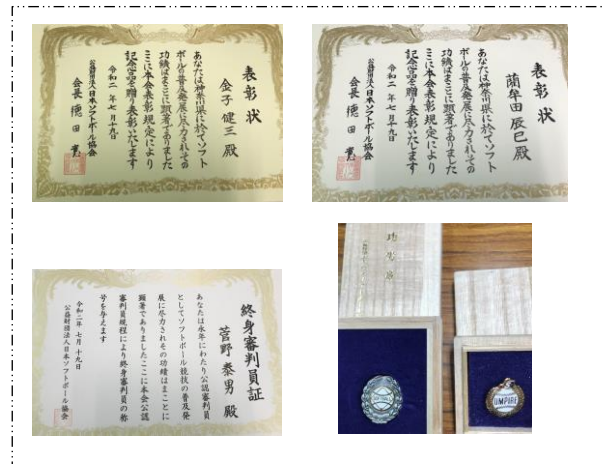 表彰状
金子健三殿
あなたは神奈川県に於てソフト
ボールの普及発展に尽力されその
功績はまことに顕著でありました
ここに本会表彰規定により
記念品を贈り表彰いたします
令和二年七月十九日
公益財団法人日本ソフトボール協会
会長 徳田寛
表彰状
藺牟田辰巳殿
あなたは神奈川県に於てソフト
ボールの普及発展に尽力されその
功績はまことに顕著でありました
ここに本会表彰規定により
記念品を贈り表彰いたします
令和二年七月十九日
公益財団法人日本ソフトボール協会
会長 徳田寛
終身審判員証
菅野泰男殿
あなたは永年にわたり公認審判員
としてソフトボール競技の普及発
展に尽力されその功績はまことに
顕著でありましたここに本会公認
審判員規程により終身審判員の称
号を与えます
令和二年七月十九日
公益財団法人日本ソフトボール協会
功労章
UMPIRE